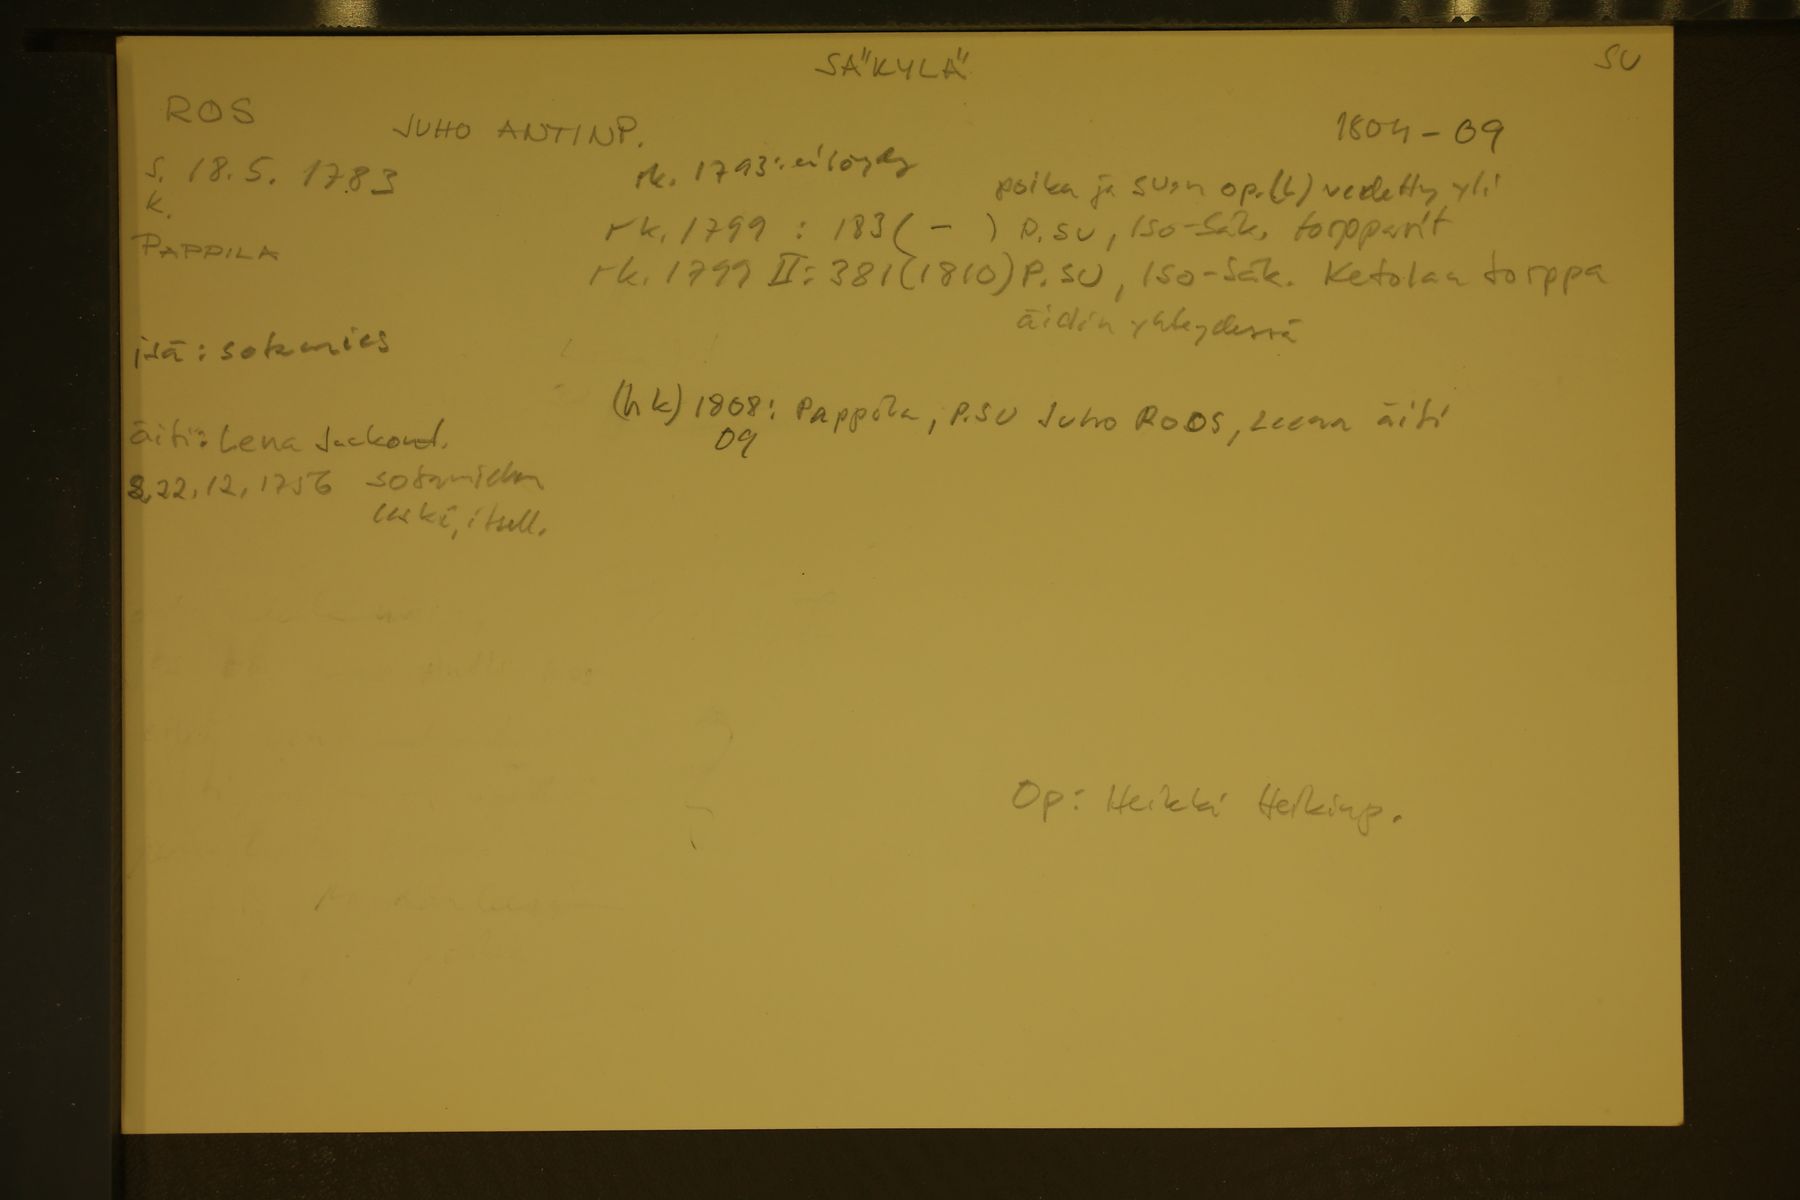 SÄKYLÄ
SU
ROS
JUHO ANTINP.
1804-09
s. 18.5. 1783
rk. 1793: ei löydy
k.
poika ja SU:n op.(h) vedetty yli
rk. 1799 : 183( - ) P.SU, Iso-Säk. torpparit
PAPPILA
rk. 1799 II: 381(1810) P.SU, Iso-Säk. Ketolan torppa
äidin yhteydessä
isä: sotamies
(hk) 1808: Pappila, P.SU Juho ROOS, Leena äiti
09
äiti: Lena Jackond.
s. 22.12.1756 sotamiehen
leski, itsell.
Op: Heikki Heikinp.